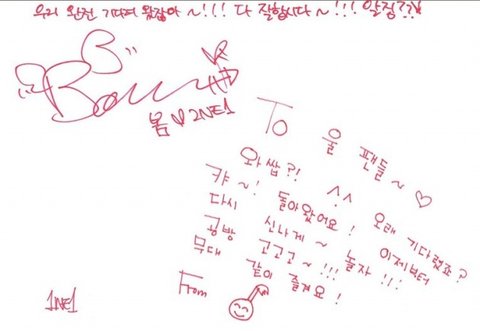 우리 완전 기다려 왔잖아~!!! 다 잘합시다~!!! 알징???
Bom
봄 ♡ 2NE1
To 울 팬들~ ♡
와썹?! ^^ 오래 기다렸죠?
캬~! 돌아왔어요! 이제부터
다시 신나게~ 놀자!!!
공방 고고고~!!!
무대 같이 즐겨요!
From
1NE1